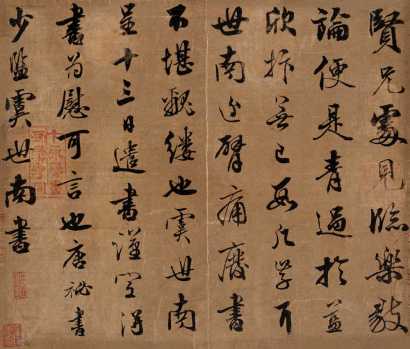 賢兄處見臨樂毅
論便是青過於藍
欣抃無已數學
世南近臂痛廢書
不堪覼縷也虞世南
呈十三日遣書謹空得
書為慰可言也唐秘書
少監虞世南書